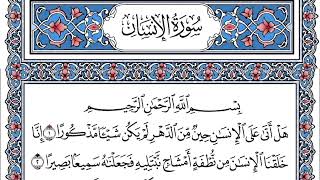 سُورَةُ الإِنسَانِ
بِسْمِ اللَّهِ الرَّحْمَٰنِ الرَّحِيمِ
هَلْ أَتَىٰ عَلَى الْإِنسَانِ حِينٌ مِّنَ الدَّهْرِ لَمْ يَكُن شَيْئًا مَّذْكُورًا ١ إِنَّا
خَلَقْنَا الْإِنسَانَ مِن نُّطْفَةٍ أَمْشَاجٍ نَّبْتَلِيهِ فَجَعَلْنَاهُ سَمِيعًا بَصِيرًا ٢